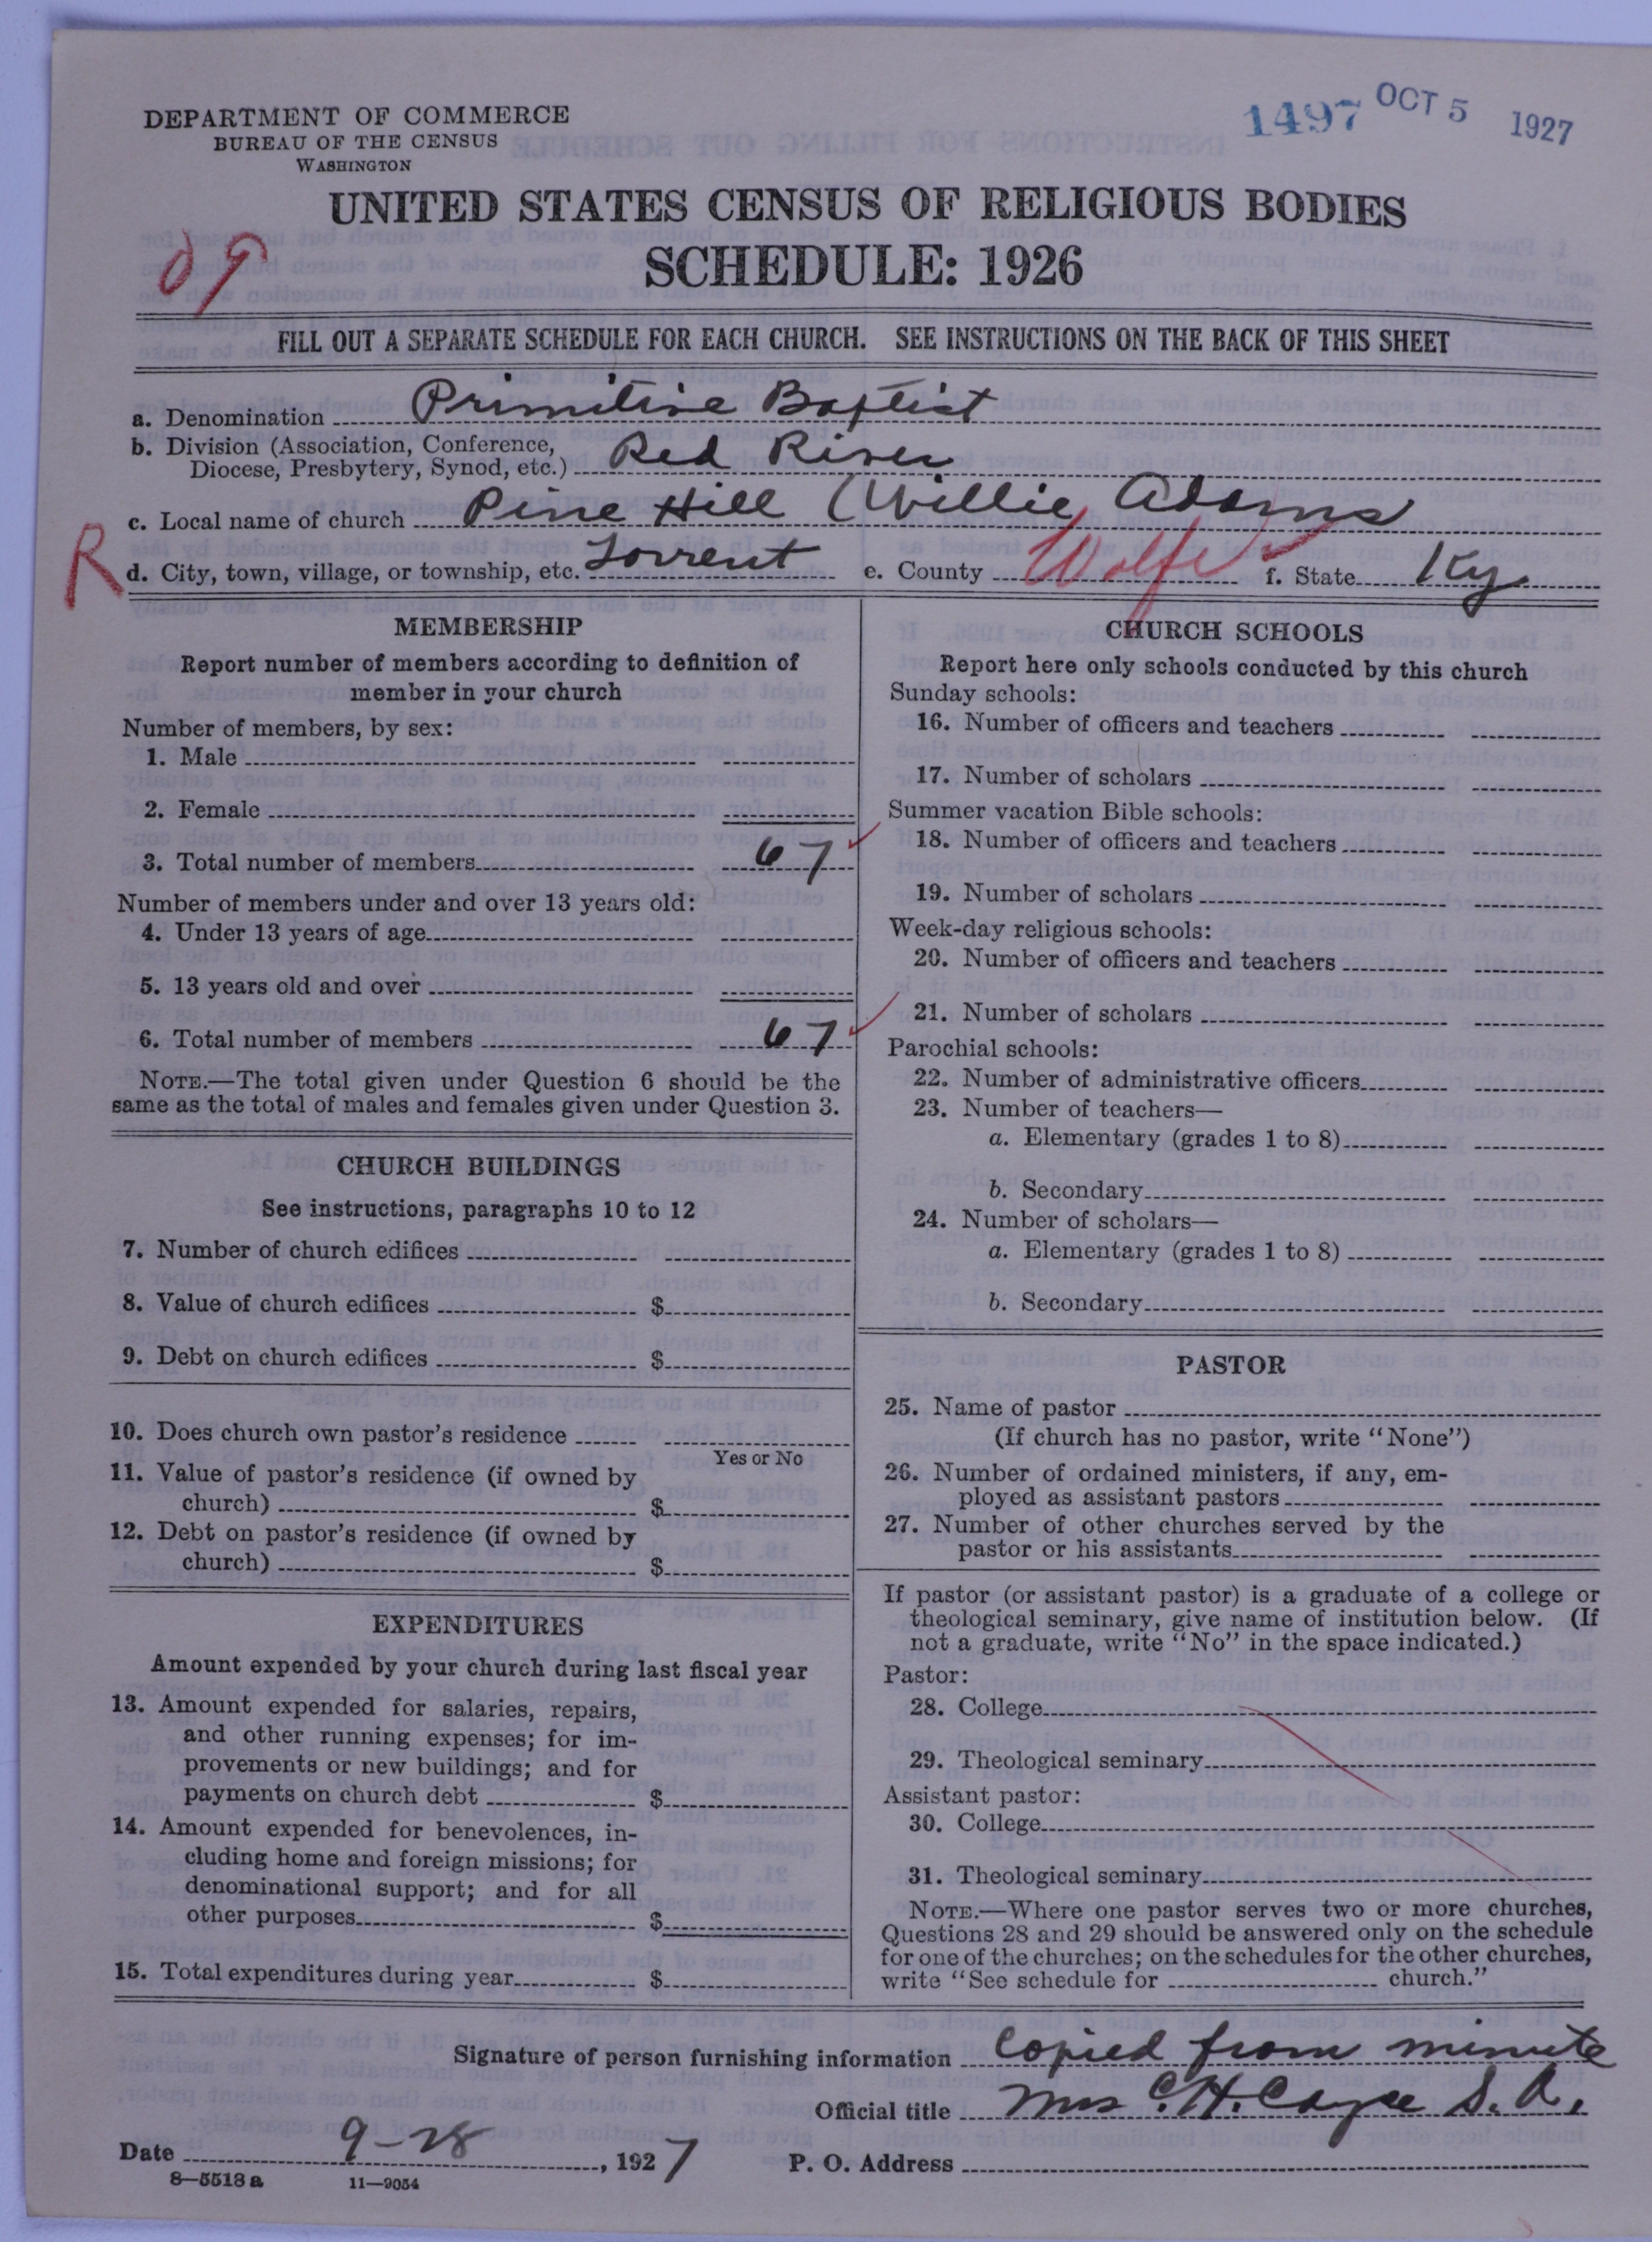 DEPARTMENT OF COMMERCE
BUREAU OF THE CENSUS
WASHINGTON
1497 OCT 5 1927
UNITED STATES CENSUS OF RELIGIOUS BODIES
SCHEDULE: 1926
FILL OUT A SEPARATE SCHEDULE FOR EACH CHURCH. SEE INSTRUCTIONS ON THE BACK OF THIS SHEET
a. Denomination Primitive Baptist
b. Division (Association, Conference,
Diocese, Presbytery, Synod, etc.) Red River
c. Local name of church Pine Hill (Willie Adams
R
d. City, town, village, or township, etc. Torrent e. County Wolfe f. State Ky.
MEMBERSHIP
Report number of members according to definition of
member in your church
Number of members, by sex:
1. Male
2. Female
3. Total number of members 67
Number of members under and over 13 years old:
4. Under 13 years of age
5. 13 years old and over
6. Total number of members 67
NOTE.—The total given under Question 6 should be the
same as the total of males and females given under Question 3.
CHURCH BUILDINGS
See instructions, paragraphs 10 to 12
7. Number of church edifices
8. Value of church edifices $
9. Debt on church edifices $
10. Does church own pastor's residence
Yes or No
11. Value of pastor's residence (if owned by
church) $
12. Debt on pastor's residence (if owned by
church) $
EXPENDITURES
Amount expended by your church during last fiscal year
13. Amount expended for salaries, repairs,
and other running expenses; for im-
provements or new buildings; and for
payments on church debt $
14. Amount expended for benevolences, in-
cluding home and foreign missions; for
denominational support; and for all
other purposes $
15. Total expenditures during year $
CHURCH SCHOOLS
Report here only schools conducted by this church
Sunday schools:
16. Number of officers and teachers
17. Number of scholars
Summer vacation Bible schools:
18. Number of officers and teachers
19. Number of scholars
Week-day religious schools:
20. Number of officers and teachers
21. Number of scholars
Parochial schools:
22. Number of administrative officers
23. Number of teachers—
a. Elementary (grades 1 to 8)
b. Secondary
24. Number of scholars—
a. Elementary (grades 1 to 8)
b. Secondary
PASTOR
25. Name of pastor
(If church has no pastor, write "None")
26. Number of ordained ministers, if any, em-
ployed as assistant pastors
27. Number of other churches served by the
pastor or his assistants
If pastor (or assistant pastor) is a graduate of a college or
theological seminary, give name of institution below. (If
not a graduate, write "No" in the space indicated.)
Pastor:
28. College
29. Theological seminary
Assistant pastor:
30. College
31. Theological seminary
NOTE.—Where one pastor serves two or more churches,
Questions 28 and 29 should be answered only on the schedule
for one of the churches; on the schedules for the other churches,
write "See schedule for church."
Signature of person furnishing information Copied from minute
Official title Mrs C. H. Cayce S. A.
Date 9-28, 1927 P. O. Address
8—5518 a 11—9054